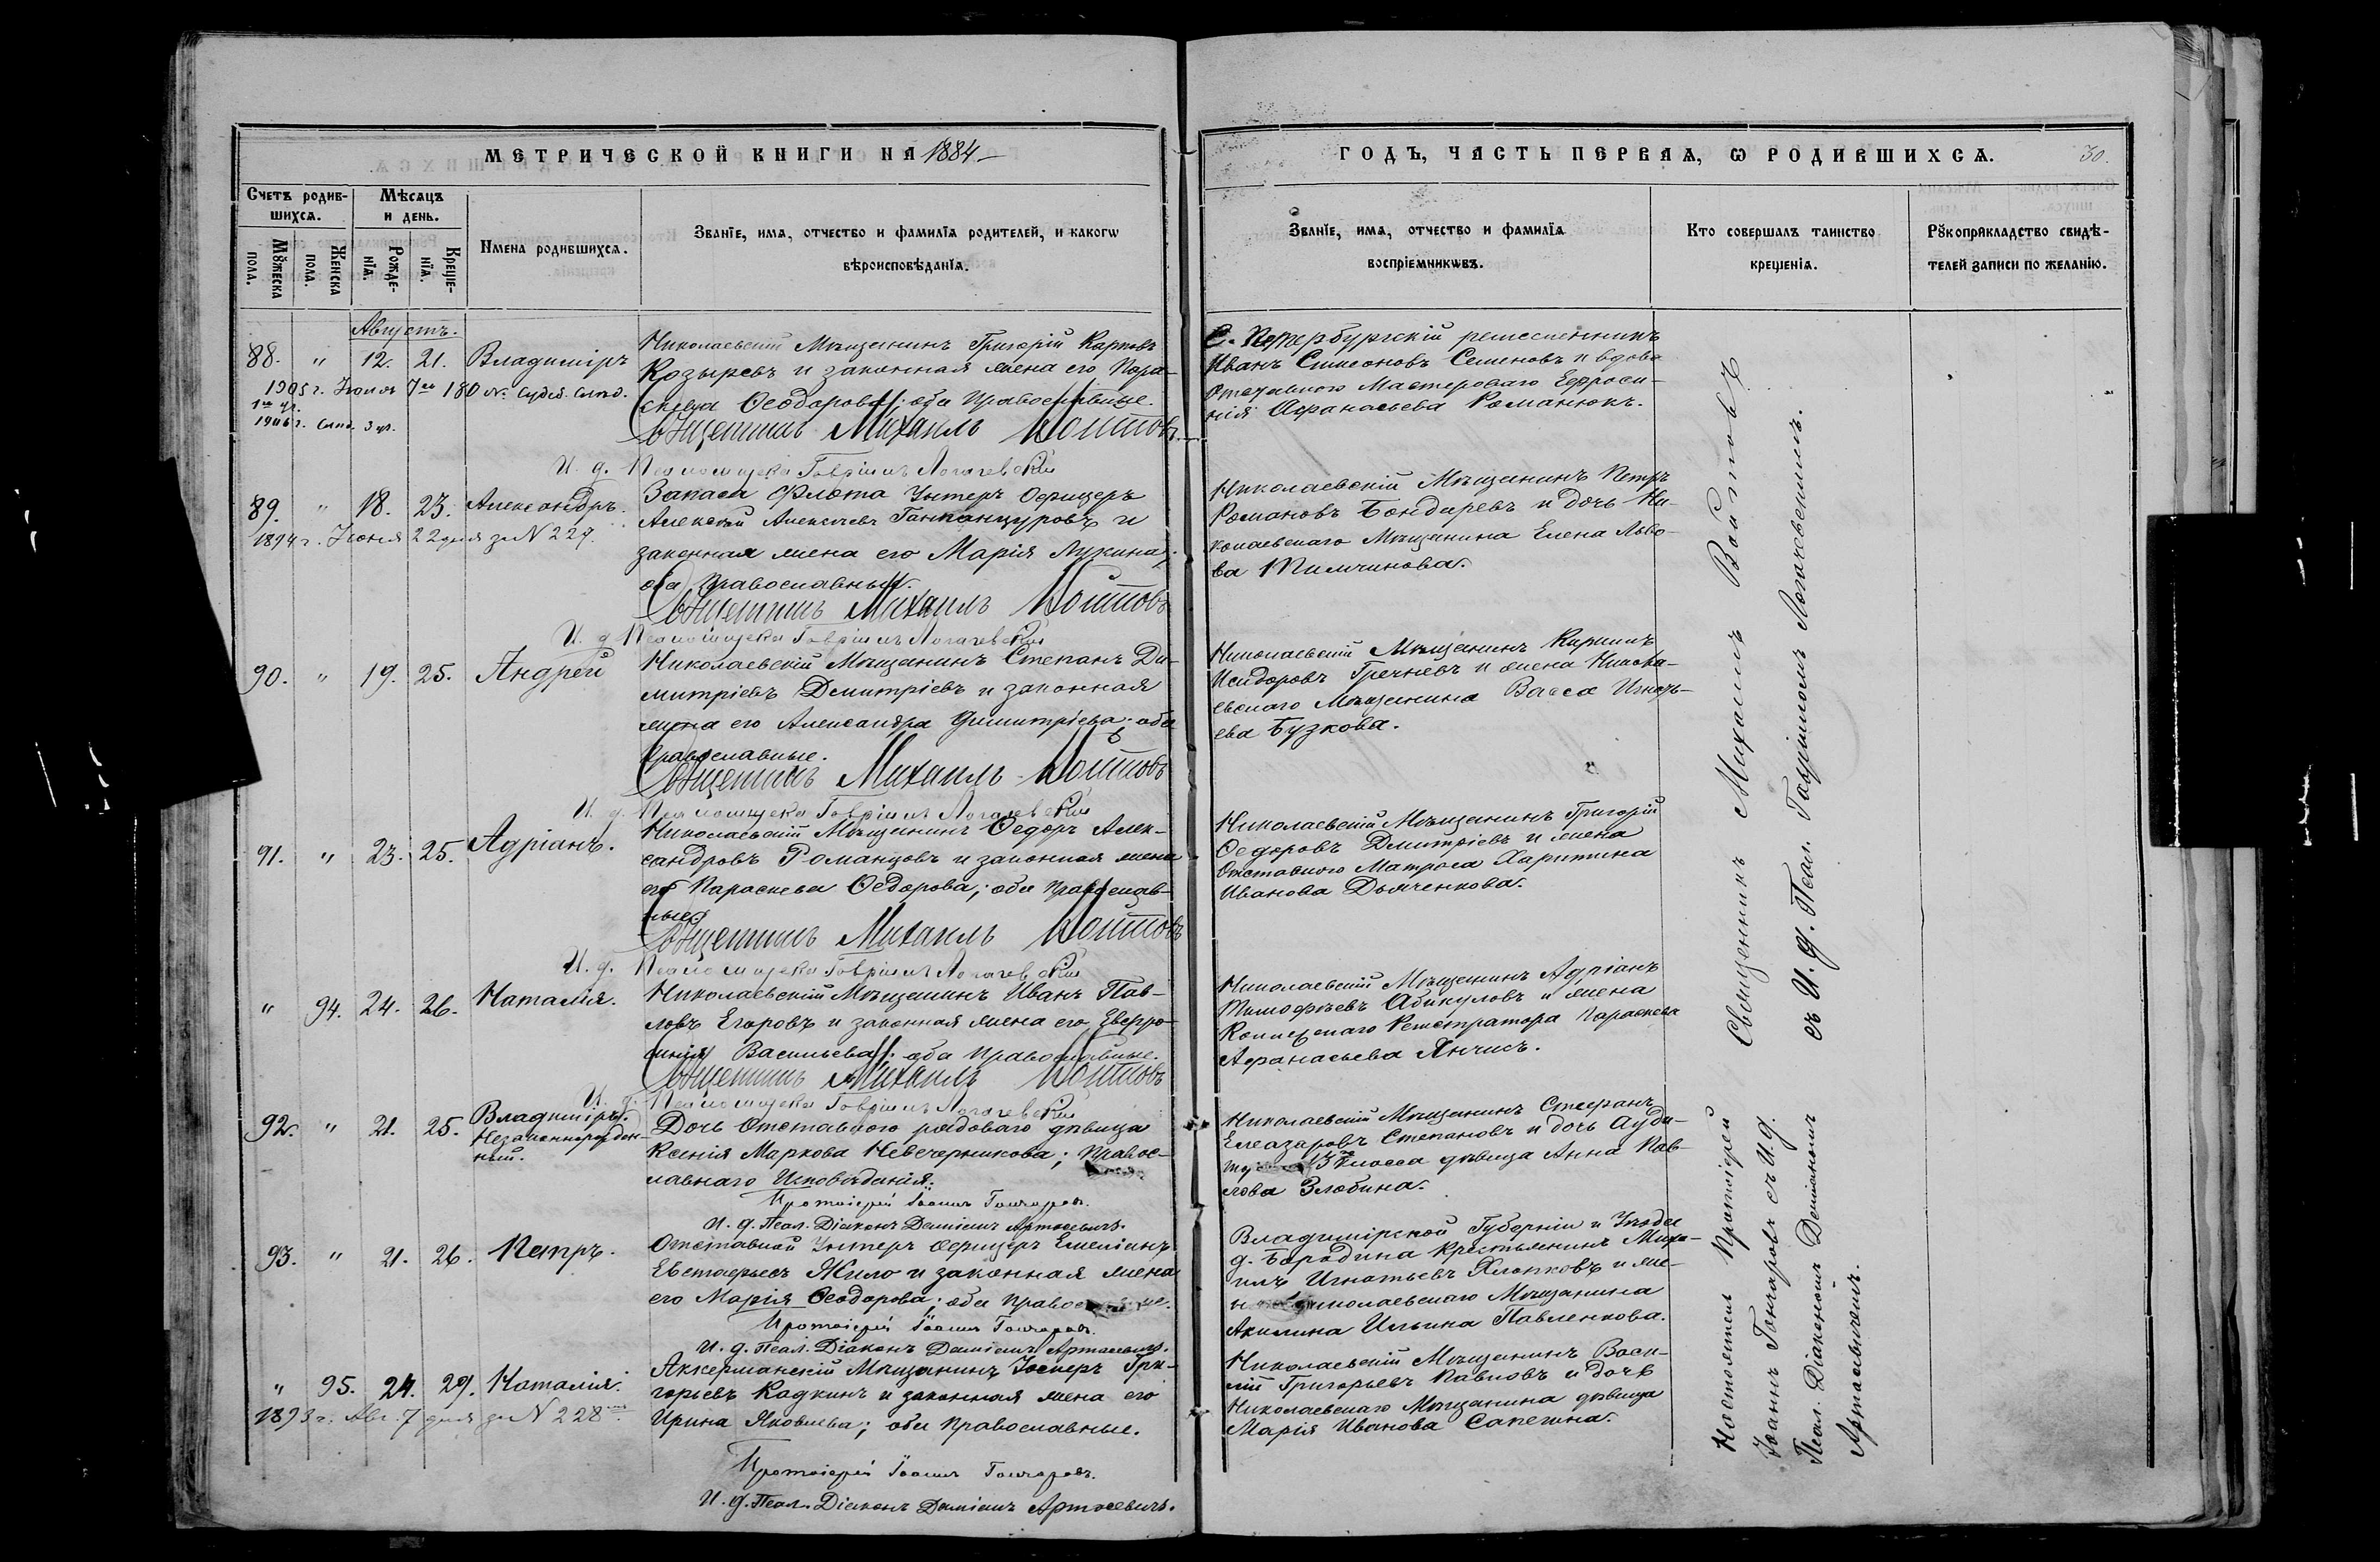 МЕТРИЧЕСКОЙ КНИГИ НА 1884
Счетъ родив-
шихся.
Мѣсяцъ
и день.
Мужеска пола.
Женска пола.
Рожде-
нія.
Креще-
нія.
Имена родившихся.
Званіе, имя, отчество и фамилія родителей, и какогѡ
вѣроисповѣданія.
Августъ.
88. " 12. 21. Владиміръ
1905 г. Іюля 7го 180 №
1906 г.
Николаевскій Мѣщанинъ Григорій Карповъ
Козыревъ и законная жена его Пара-
скева Ѳеодорова; оба православные.
Священникъ Михаилъ Войтовъ
И. д. Псаломщика Гавріилъ Логачевскій
89. " 18. 23. Александръ.
1894 г. Іюня 22 дня за N 227.
Запаса Флота Унтеръ Офицеръ
Алексѣй Алексѣевъ и
законная жена его Марія Лукина;
оба православные.
Священникъ Михаилъ Войтовъ
И. д. Псаломщика Гавріилъ Логачевскій
90. " 19. 25. Андрей
Николаевскій Мѣщанинъ Степанъ Ди-
митріевъ Дмитріевъ и законная
жена его Александра Димитріева; оба
православные.
Священникъ Михаилъ Войтовъ
И. д. Псаломщика Гавріилъ Логачевскій
91. " 23. 25. Адріанъ.
Николаевскій Мѣщанинъ Ѳедоръ Алек-
сандровъ Романцовъ и законная жена
его Параскева Ѳедорова; оба православ-
ные.
Священникъ Михаилъ Войтовъ
И. д. Псаломщика Гавріилъ Логачевскій
" 94. 24. 26. Наталія.
Николаевскій Мѣщанинъ Иванъ Пав-
ловъ Егоровъ и законная жена его Евфро-
синія Васильева; оба православные.
Священникъ Михаилъ Войтовъ
И. д. Псаломщика Гавріилъ Логачевскій
92. " 21. 25. Владиміръ.
Незаконнорожден-
ный.
Дочь Отставного рядоваго дѣвица
Ксенія Маркова Невечерникова; Правос-
лавнаго Исповѣданія.
Протоіерей Іоаннъ Гончаровъ.
И. д. Псал. Діаконъ Даміанъ Артасевичъ.
93. " 21. 26. Петръ.
Отставной Унтеръ офицеръ Емеліанъ
Евстафьевъ Жило и законная жена
его Марія Ѳеодорова; оба
Протоіерей Іоаннъ Гончаровъ.
И. д. Псал. Діаконъ Даміанъ Артасевичъ.
" 95. 24. 29. Наталія.
1893 г. Авг. 7 дня за N 228
Аккерманскій Мѣщанинъ Іосифъ Гри-
горьевъ Кадкинъ и законная жена его
Ирина Яковлева; оба Православные.
Протоіерей Іоаннъ Гончаровъ.
И. д. Псал. Діаконъ Даміанъ Артасевичъ.
ГОДЪ, ЧАСТЬ ПЕРВАЯ, Ѡ РОДИВШИХСЯ. 30.
Званіе, имя, отчество и фамилія
воспріемникѡвъ.
Кто совершалъ таинство
крещенія.
Рꙋкоприкладство свидѣ-
телей записи по желанію.
С. Петербургскій ремесленникъ
Иванъ Симеоновъ Семеновъ и вдова
Отставнаго Мастероваго Ефроси-
нія Афанасьева Романюкъ.
Николаевскій Мѣщанинъ Петръ
Романовъ Бондаревъ и дочь Ни-
колаевскаго Мѣщанина Елена Льво-
ва
Николаевскій Мѣщанинъ Кириллъ
Исидоровъ Гречневъ и жена Никола-
евскаго Мѣщанина Васса Игнать-
ева Бузкова.
Николаевскій Мѣщанинъ Григорій
Ѳедоровъ Дмитріевъ и жена
Отставного Матроса Харитина
Иванова Дьяченкова.
Николаевскій Мѣщанинъ Адріанъ
Тимофѣевъ Абикуловъ и жена
Коллежскаго Регистратора Параскева
Афанасьева Янчисъ.
Николаевскій Мѣщанинъ Стефанъ
Елеазаровъ Степановъ и дочь Ауди-
13 класса дѣвица Анна Пав-
лова Злобина.
Владимірской Губерніи и Уѣзда
д. Бородина Крестьянинъ Миха-
илъ Игнатьевъ Хлопковъ и же-
на Николаевскаго Мѣщанина
Акилина Ильина Павленкова.
Николаевскій Мѣщанинъ Васи-
лій Григорьевъ Павловъ и дочь
Николаевскаго Мѣщанина дѣвица
Марія Иванова Сапегина.
Священникъ Михаилъ Войтовъ
съ И. д. Псал. Гавріиломъ Логачевскимъ.
Настоятель Протоіерей
Іоаннъ Гончаровъ съ И. д.
Псал. Діакономъ Даміаномъ
Артасевичемъ.